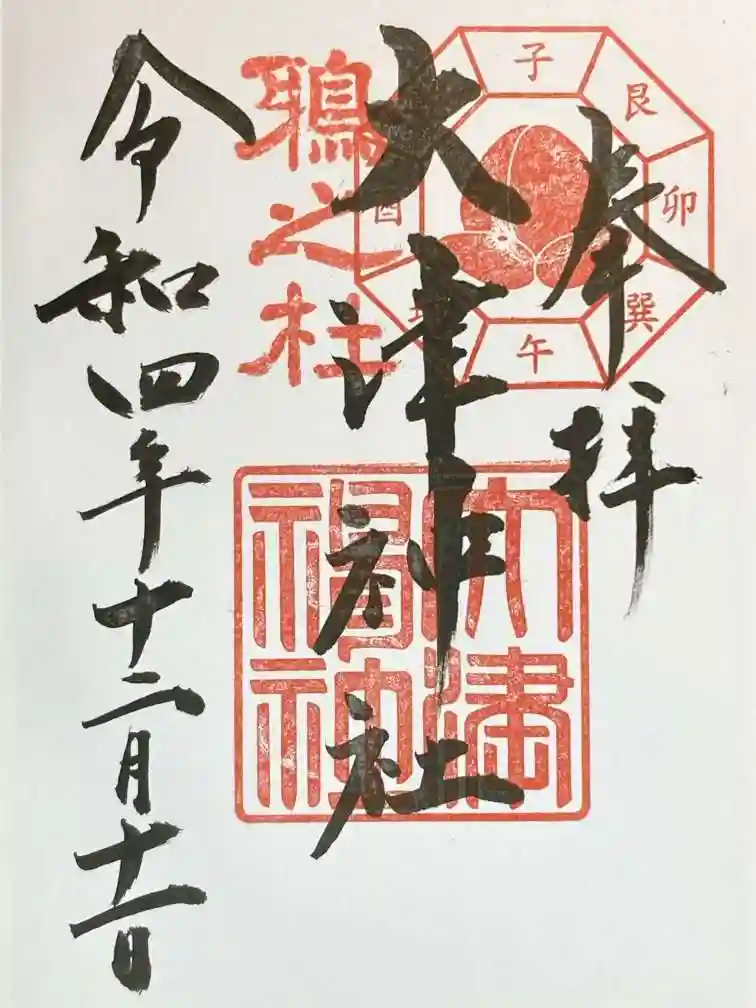 奉拝
大津神社
令和四年十二月十一日
鴉之杜
子
艮
卯
巽
午
坤
酉
大津